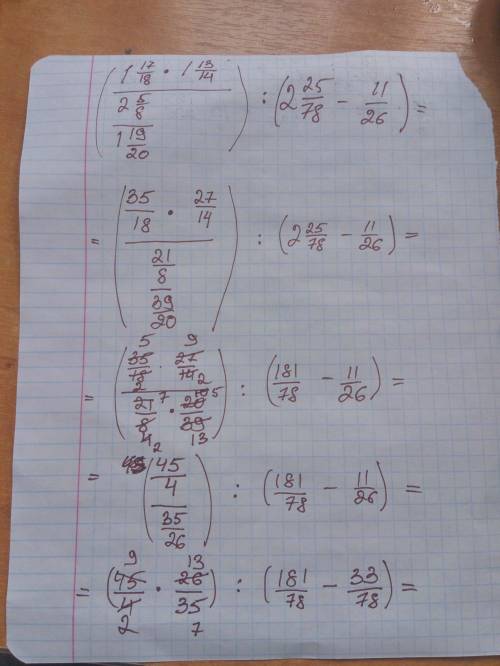 (1 17/18 · 1 13/14 / (2 5/8 / 1 19/20)) : (2 25/78 − 11/26) =
= (35/18 · 27/14 / (21/8 / 39/20)) : (2 25/78 − 11/26) =
= (35/18 · 27/14 / (21/8 · 20/39)) : (181/78 − 11/26) =
= (45/4 / 35/26) : (181/78 − 11/26) =
= (45/4 · 26/35) : (181/78 − 33/78) =